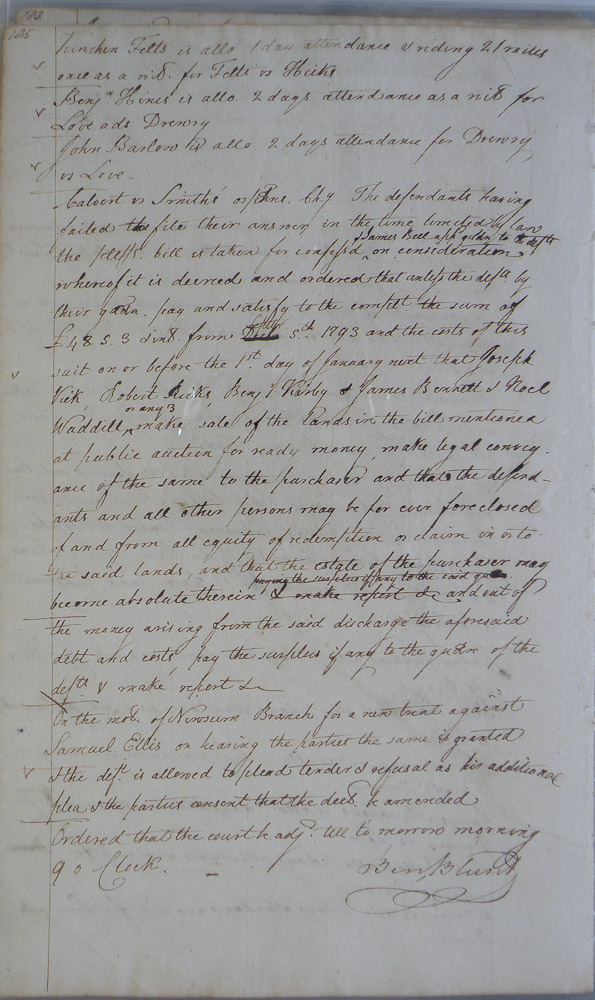 183
185
Kinchen Felts is allo 1 day attendance & riding 21 miles
once as a wit. for Felts vs Hicks
Benjn Hines is allo. 2 days attendance as a wit for
Love ads Drewry
John Barlow is allo 2 days attendance for Drewry
vs Love.
Calvert vs Smiths orphns. Chy The defendants having
failed to file their answer in the time limited by law
the pltffs. bill is taken for confessd, on consideration
James Bell appd guardn to the defts
whereof it is decreed and ordered that unless the defts by
their guardn. pay and satisfy to the complt the sum of
£48.5.3 &int. from 5th 1793 and the costs of this
suit on or before the 1st. day of January next that Joseph
Vick, Robert Ricks, Benjn Kirby & James Bennett & Noel
or any 3
Waddill, make sale of the lands in the bill mentioned
at public auction for ready money, make legal convey-
ance of the same to the purchaser and that the defend-
ants and all other persons may be for ever foreclosed
of and from all equity of redemption or claim in or to
the said lands, and that the estate of the purchaser may
paying the surplus if any to the said guardn
become absolute therein & make report &c and out of
the money arising from the said discharge the aforesaid
debt and costs, pay the surplus if any to the guardn of the
defts & make report &c
On the mot. of Newsum Branch for a new trial against
Samuel Ellis on hearing the parties the same is granted
& the deft. is allowed to plead tender & refusal as his additional
plea & the parties consent that the decn. be amended
Ordered that the court be adjd. till to morrow morning
9 o Clock.
Ben Blunt